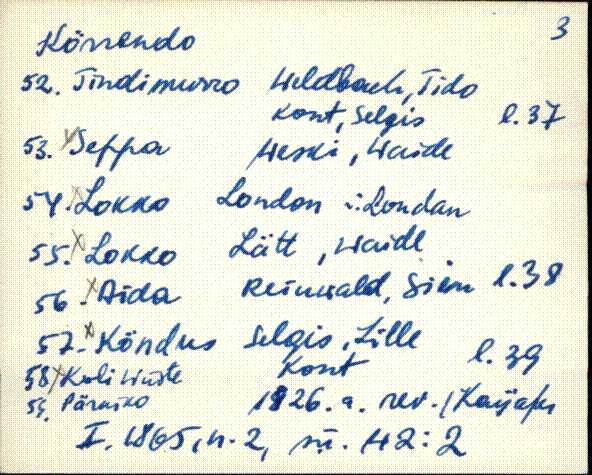 Kõnnendo 3
52. Tindimurro Weldbach, Tido
Kont, Selgis l. 37
53. Seppa Weski, Waide
54. Lokko London i: Londan
55. Lokko Lätt, Waide
56. Aida Reinwald, Siem l. 38
57. Kõndus Selgis, Lille
Kont l. 39
58 Kooli
59. Pärniko 1826. a. rev.
I. 1865, n. 2, 42:2